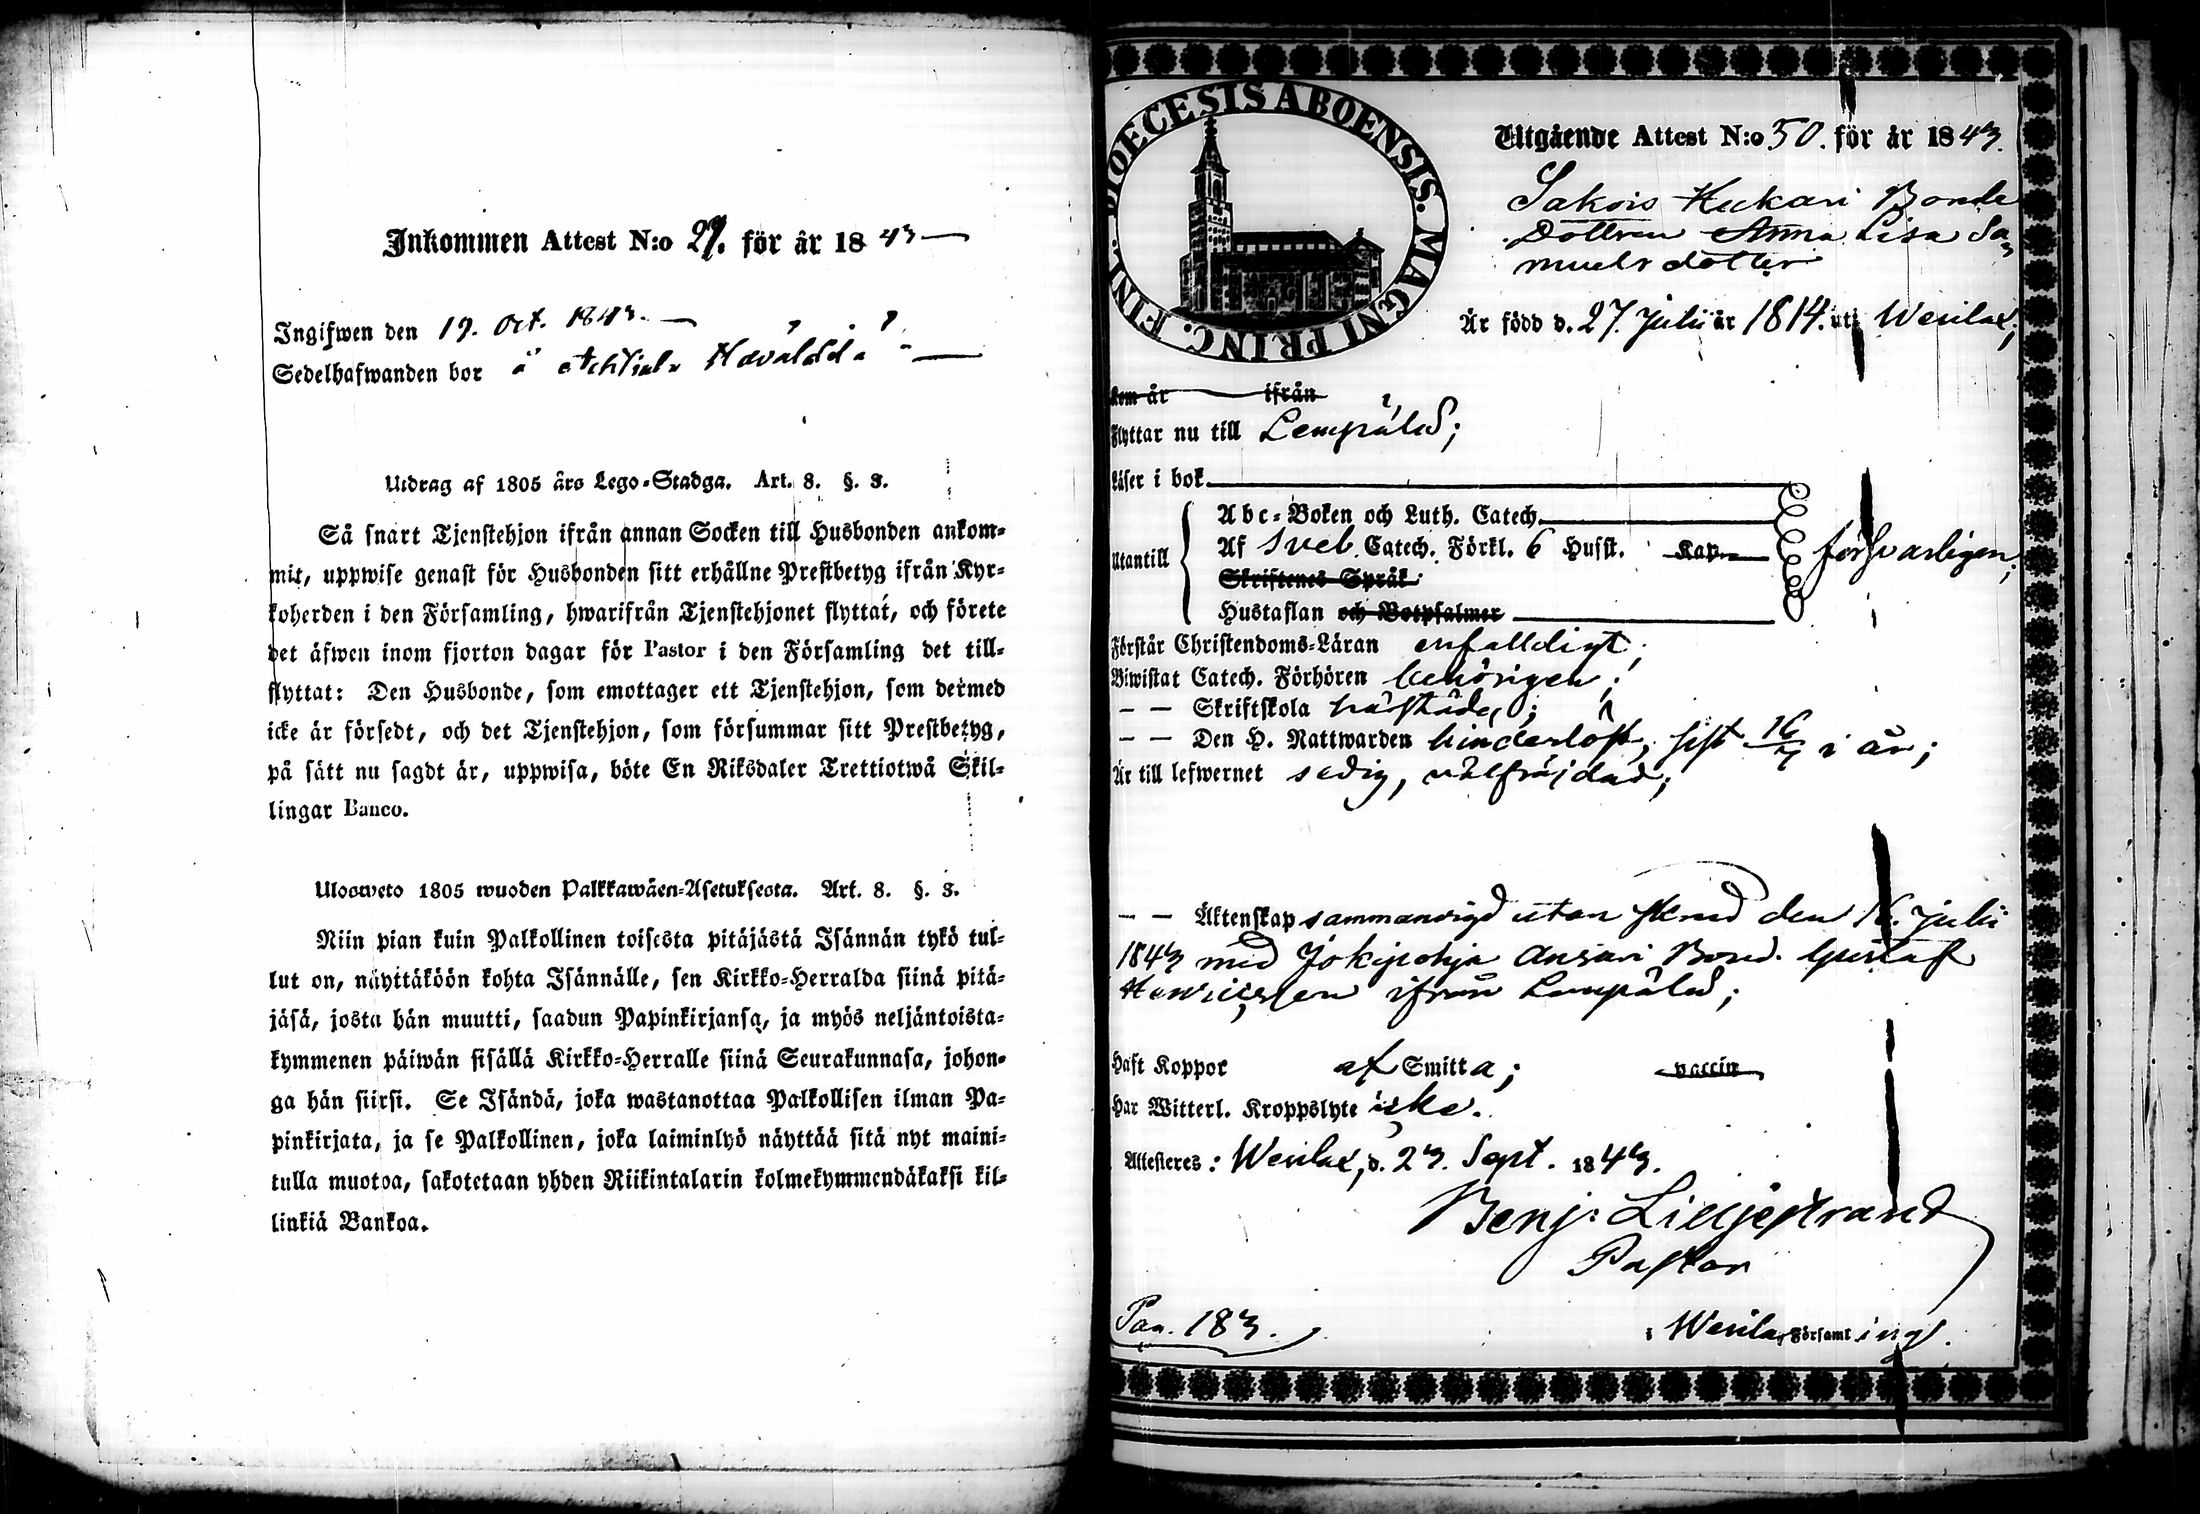 Inkommen Attest N:o 29. för år 1843
Ingifwen den 19. Oct. 1843.
Sedelhafwanden bor å
Utdrag af 1805 års Lego-Stadga. Art. 8. §. 3.
Så snart Tjenstehjon ifrån annan Socken till Husbonden ankom-
mit, uppwise genast för Husbonden sitt erhållne Prestbetyg ifrån Kyr-
koherden i den Församling, hwarifrån Tjenstehjonet flyttat, och förete
det äfwen inom fjorton dagar för Pastor i den Församling det till-
flyttat: Den Husbonde, som emottager ett Tjenstehjon, som dermed
icke är försedt, och det Tjenstehjon, som försummar sitt Prestbetyg,
på sätt nu sagdt är, uppwisa, böte En Riksdaler Trettiotwå Skil-
lingar Banco.
Ulosweto 1805 wuoden Palkkawäen-Asetuksesta. Art. 8. §. 3.
Niin pian kuin Palkollinen toisesta pitäjästä Isännän tykö tul-
lut on, näyttäköön kohta Isännälle, sen Kirkko-Herralda siinä pitä-
jäsä, josta hän muutti, saadun Papinkirjansa, ja myös neljäntoista-
kymmenen päiwän sisällä Kirkko-Herralle siinä Seurakunnasa, johon-
ga hän siirsi. Se Isändä, joka wastanottaa Palkollisen ilman Pa-
pinkirjata, ja se Palkollinen, joka laiminlyö näyttää sitä nyt maini-
tulla muotoa, sakotetaan yhden Riikintalarin kolmekymmendäkaksi kil-
linkiä Bankoa.
DIOECESIS ABOENSIS. MAGNI PRINC. FINL.
Utgående Attest N:o 50. för år 1843.
Sakois Hukari Bonde
Dottren Anna Lisa Sa-
muelsdotter
Är född d. 27. Julii år 1814. uti Wesilax;
Kom år ifrån
Flyttar nu till Lempälä;
Läser i bok
Abc-Boken och Luth. Catech.
Utantill Af Sveb. Catech. Förkl. 6 Hufst. Kap. försvarligen;
Skriftenes Språk
Hustaflan och Botpsalmer
Förstår Christendoms-Läran enfalldigt;
Biwistat Catech. Förhören behörigen;
— — Skriftskola
— — Den H. Nattwarden hinderlöst, sist 16/7 i år;
Är till lefwernet sedig, välfräjdad;
— — Äktenskap sammanvigd utan den 16. Julii
1843 med Jokipohja Ansari Bond. Gustaf
Henricsson ifrån Lempälä;
Haft Koppor af Smitta; vaccin
Har Witterl. Kroppslyte icke.
Attesteres: Wesilax, d. 23. Sept. 1843.
Benj: Liljestrand
Pastor
Pag. 183.
i Wesilax Församlings.